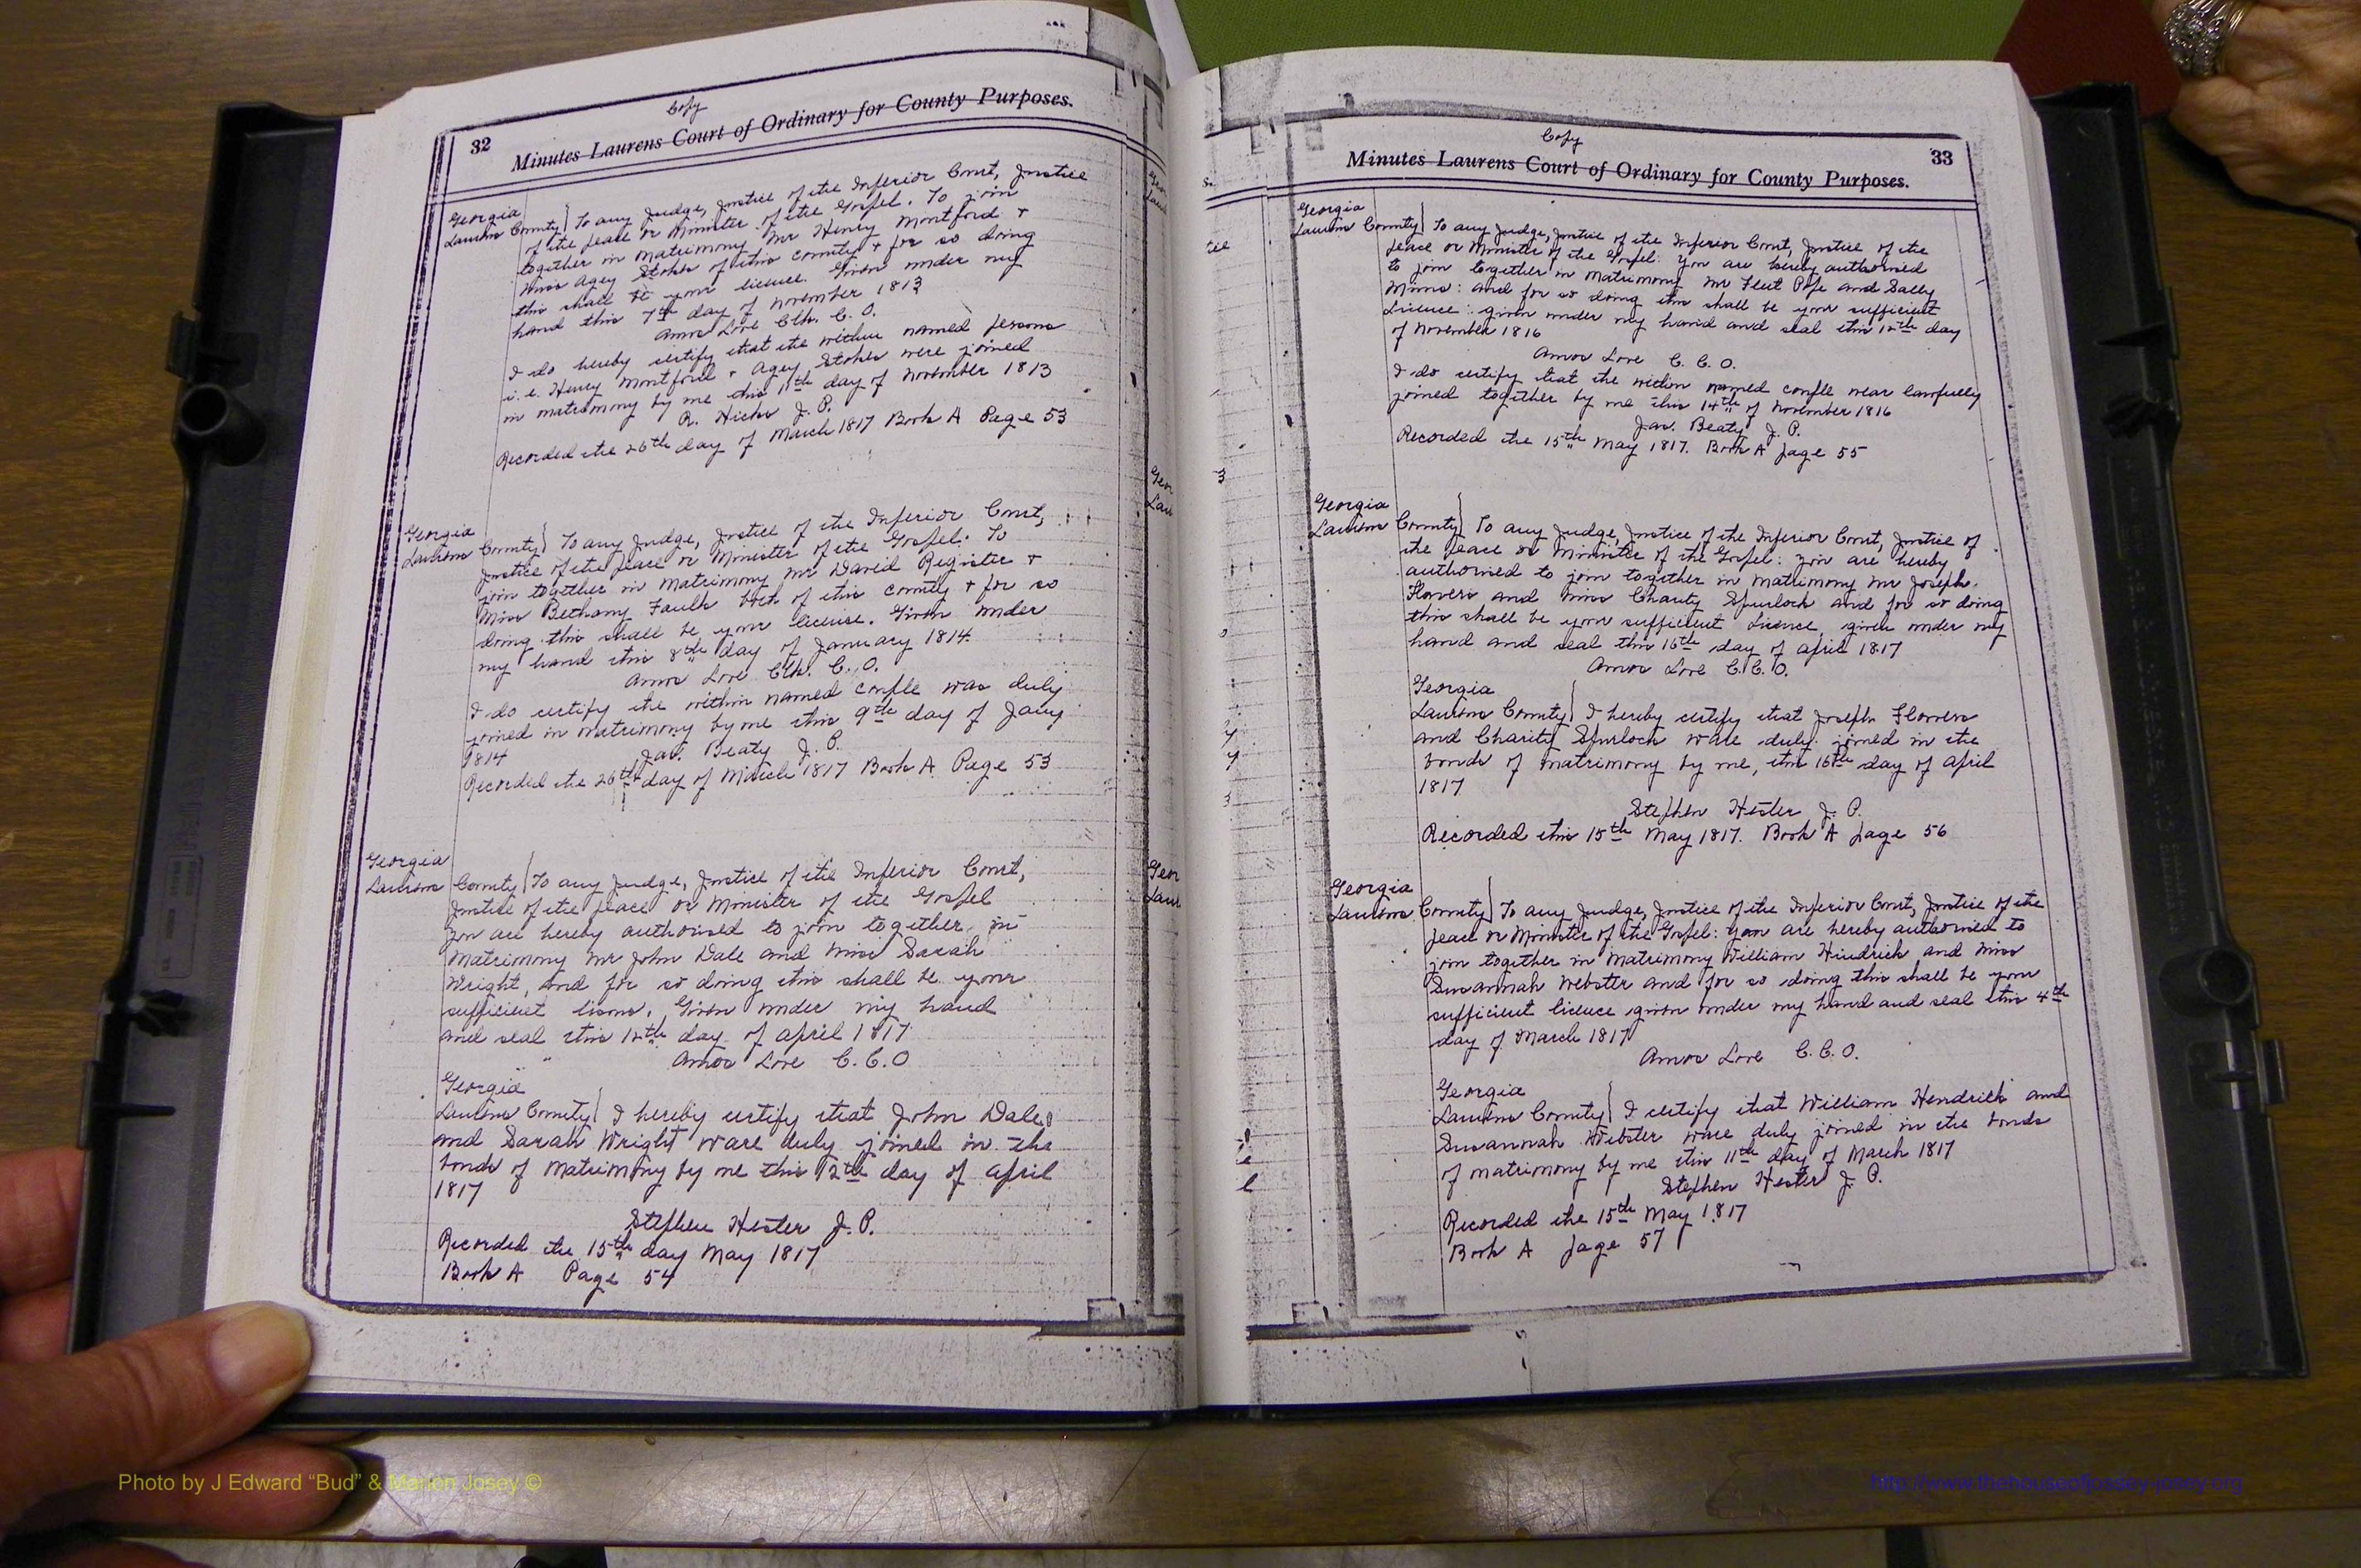 Copy
32
Minutes Laurens Court of Ordinary for County Purposes.
Georgia
Laurens County} To any Judge, Justice of the Inferior Court, Justice
of the peace or Minister of the Gospel. To join
together in matrimony Mr Henry Montford +
Miss Agey Stokes of this county + for so doing
this shall be your licence. Given under my
hand this 7th day of November 1813
Amos Love Clk. C. O.
I do hereby certify that the within named persons
i. e. Henry Montford + Agey Stokes were joined
in matrimony by me this 11th day of November 1813
R. Hicks J. P.
Recorded the 26th day of March 1817 Book A Page 53
Georgia
Laurens County} To any Judge, Justice of the Inferior Court,
Justice of the peace or Minister of the Gospel. To
join together in matrimony Mr David Register +
Miss Bethany Faulk both of this county + for so
doing this shall be your license. Given under
my hand this 8th day of January 1814
Amos Love Clk. C. O.
I do certify the within named couple was duly
joined in matrimony by me this 9th day of Jany
1814
Jas. Beaty J. P.
Recorded the 26th day of March 1817 Book A Page 53
Georgia
Laurens County} To any Judge, Justice of the Inferior Court,
Justice of the peace or Minister of the Gospel
you are hereby authorised to join together in
Matrimony Mr John Dale and Miss Sarah
Wright, and for so doing this shall be your
sufficient lisens. Given under my hand
and seal this 12th day of april 1817
Amos Love C. C. O
Georgia
Laurens County} I hereby certify that John Dale
and Sarah Wright ware duly joined in the
bonds of matrimony by me this 12th day of april
1817
Stephen Hester J. P.
Recorded the 15th day May 1817
Book A Page 54
Copy
Minutes Laurens Court of Ordinary for County Purposes.
33
Georgia
Laurens County} To any Judge, Justice of the Inferior Court, Justice of the
peace or Minister of the Gospel: you are hereby authorised
to join together in Matrimony Mr Fleet Pope and Sally
Mims: and for so doing this shall be your sufficient
Licence: given under my hand and seal this 12th day
of November 1816
Amos Love C. C. O.
I do certify that the within named couple wear lawfully
joined together by me this 14th of November 1816
Jas. Beaty J. P.
Recorded the 15th May 1817. Book A page 55
Georgia
Laurens County} To any Judge, Justice of the Inferior Court, Justice of
the peace or Minister of the Gospel: you are hereby
authorised to join together in matrimony Mr Joseph
Flowers and Miss Charity Spurlock and for so doing
this shall be your sufficient Licence, given under my
hand and seal this 16th day of april 1817
Amos Love C. C. O.
Georgia
Laurens County} I hereby certify that Joseph Flowers
and Charity Spurlock ware duly joined in the
bonds of matrimony by me, this 16th day of april
1817
Stephen Hester J. P.
Recorded this 15th May 1817. Book A page 56
Georgia
Laurens County} To any Judge, Justice of the Inferior Court, Justice of the
peace or Minister of the Gospel: you are hereby authorised to
join together in matrimony William Hindrick and Miss
Susannah Webster and for so doing this shall be your
sufficient licence given under my hand and seal this 4th
day of March 1817
Amos Love C. C. O.
Georgia
Laurens County} I certify that William Hendrick and
Susannah Webster ware duly joined in the bonds
of matrimony by me this 11th day of March 1817
Stephen Hester J. P.
Recorded the 15th May 1817
Book A page 57
Photo by J Edward “Bud” & Marion Josey ©
http://www.thehouseofjossey-josey.org